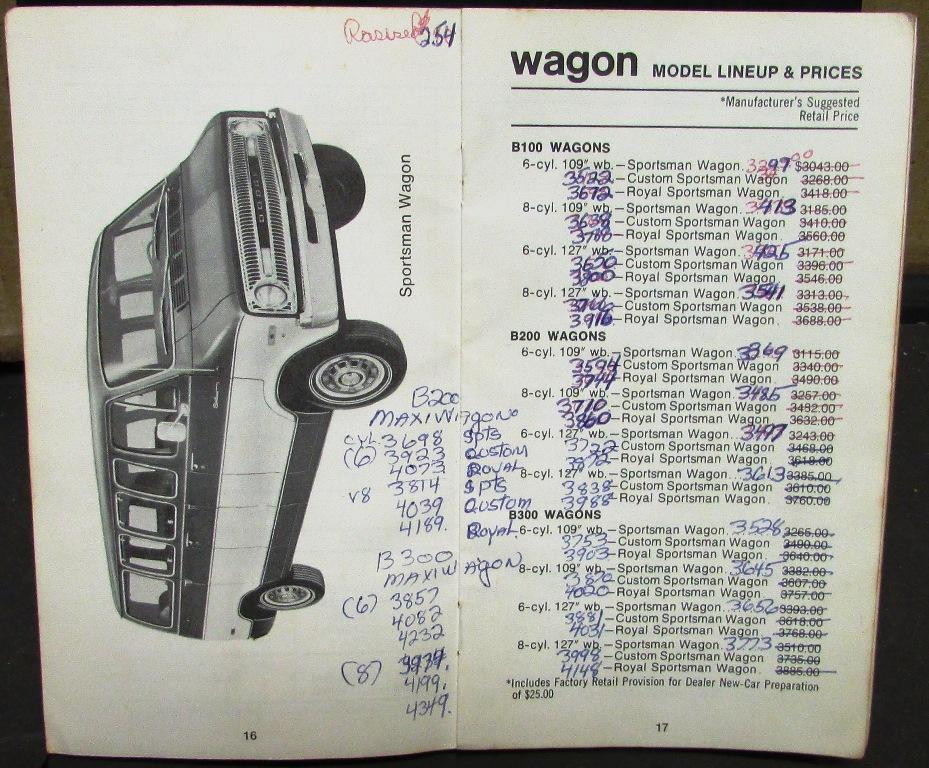 254
DODGE
Sportsman Wagon
B200
MAXIWagon
cyl. 3698 Spts
(6) 3923 Custom
4073 Royal
V8 3814 Spts
4039 Custom
4189. Royal
B300
MAXIWagon
(6) 3857
4082
4232
(8)
4199.
4349.
16
wagon MODEL LINEUP & PRICES
*Manufacturer's Suggested
Retail Price
B100 WAGONS
6-cyl. 109" wb.—Sportsman Wagon. 3297 $3043.00
3522—Custom Sportsman Wagon 3268.00
3672—Royal Sportsman Wagon. 3418.00
8-cyl. 109" wb.—Sportsman Wagon. 3413 3185.00
3638—Custom Sportsman Wagon 3410.00
—Royal Sportsman Wagon 3560.00
6-cyl. 127" wb.—Sportsman Wagon 3425 3171.00
—Custom Sportsman Wagon. 3396.00
—Royal Sportsman Wagon. 3546.00
8-cyl. 127" wb.—Sportsman Wagon. 3541 3313.00
—Custom Sportsman Wagon. 3538.00
3916—Royal Sportsman Wagon. 3688.00
B200 WAGONS
6-cyl. 109" wb.—Sportsman Wagon. 3369 3115.00
3594—Custom Sportsman Wagon. 3340.00
3744—Royal Sportsman Wagon. 3490.00
8-cyl. 109" wb.—Sportsman Wagon. 3485 3257.00
3710—Custom Sportsman Wagon. 3482.00
3860—Royal Sportsman Wagon. 3632.00
6-cyl. 127" wb.—Sportsman Wagon. 3497 3243.00
3722—Custom Sportsman Wagon. 3468.00
3872—Royal Sportsman Wagon. 3618.00
8-cyl. 127" wb.—Sportsman Wagon. 3613 3385.00
3838—Custom Sportsman Wagon. 3610.00
3988—Royal Sportsman Wagon. 3760.00
B300 WAGONS
6-cyl. 109" wb.—Sportsman Wagon. 3528 3265.00
3753—Custom Sportsman Wagon. 3490.00
3903—Royal Sportsman Wagon. 3640.00
8-cyl. 109" wb.—Sportsman Wagon. 3645 3382.00
3870—Custom Sportsman Wagon. 3607.00
4020—Royal Sportsman Wagon. 3757.00
6-cyl. 127" wb.—Sportsman Wagon. 3656 3393.00
3881—Custom Sportsman Wagon. 3618.00
4031—Royal Sportsman Wagon. 3768.00
8-cyl. 127" wb.—Sportsman Wagon. 3773 3510.00
3998—Custom Sportsman Wagon. 3735.00
4148—Royal Sportsman Wagon. 3885.00
*Includes Factory Retail Provision for Dealer New-Car Preparation
of $25.00
17